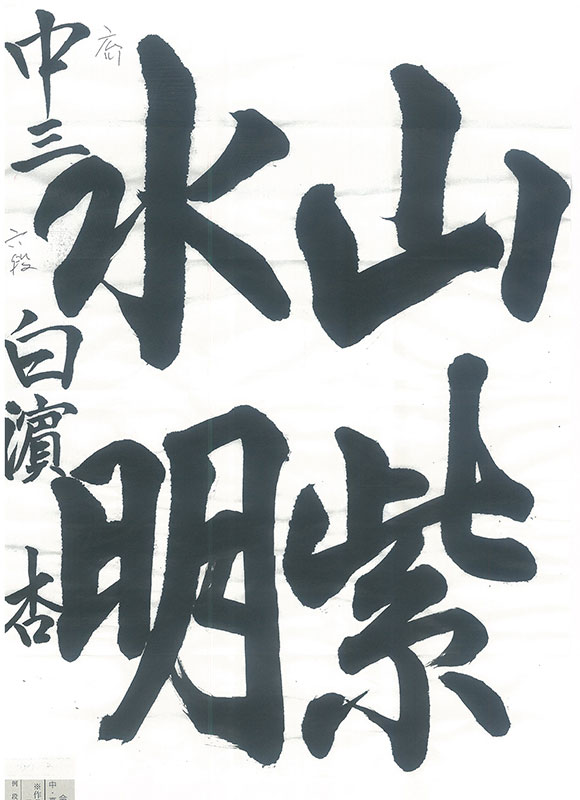 山紫
水明
中三 白濱 杏
六段